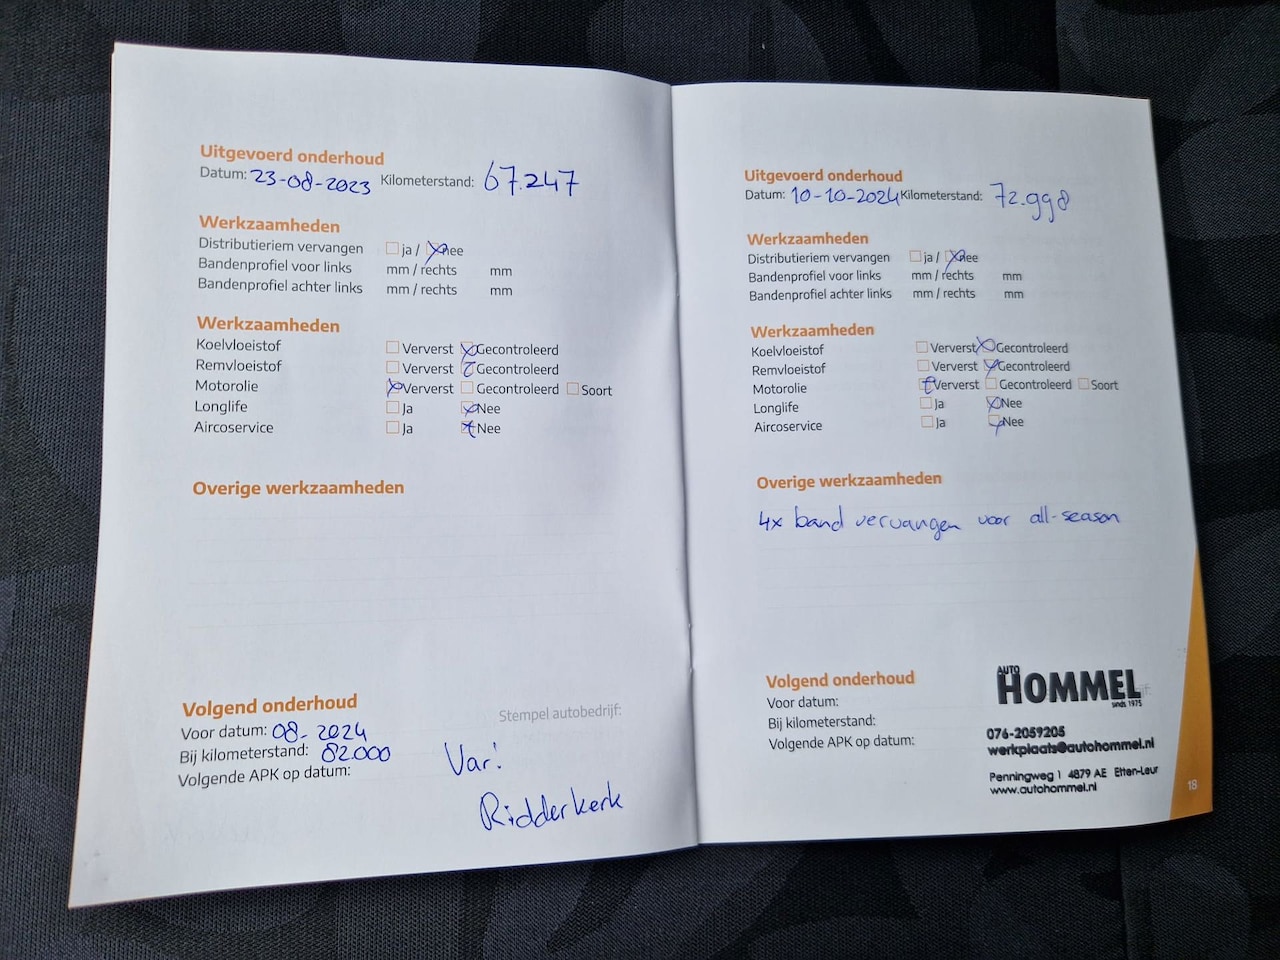 Uitgevoerd onderhoud
Datum: 23-08-2023 Kilometerstand: 67.247
Werkzaamheden
Distributieriem vervangen ja / nee
Bandenprofiel voor links mm / rechts mm
Bandenprofiel achter links mm / rechts mm
Werkzaamheden
Koelvloeistof Ververst Gecontroleerd
Remvloeistof Ververst Gecontroleerd
Motorolie Ververst Gecontroleerd Soort
Longlife Ja Nee
Aircoservice Ja Nee
Overige werkzaamheden
Volgend onderhoud
Voor datum: 08-2024
Bij kilometerstand: 82.000
Volgende APK op datum:
Stempel autobedrijf:
Var!
Ridderkerk
Uitgevoerd onderhoud
Datum: 10-10-2024 Kilometerstand: 72.998
Werkzaamheden
Distributieriem vervangen ja / nee
Bandenprofiel voor links mm / rechts mm
Bandenprofiel achter links mm / rechts mm
Werkzaamheden
Koelvloeistof Ververst Gecontroleerd
Remvloeistof Ververst Gecontroleerd
Motorolie Ververst Gecontroleerd Soort
Longlife Ja Nee
Aircoservice Ja Nee
Overige werkzaamheden
4x band vervangen voor all-season
Volgend onderhoud
Voor datum:
Bij kilometerstand:
Volgende APK op datum:
AUTO
HOMMEL
sinds 1975
076-2059205
werkplaats@autohommel.nl
Penningweg 1 4879 AE Etten-Leur
www.autohommel.nl
18